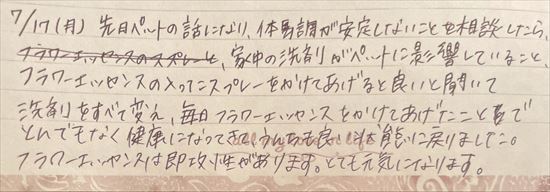 7/17(月) 先日ペットの話になり、体調が安定しないことを相談したら、
フラワーエッセンスのスプレーと、家中の洗剤がペットに影響していること、
フラワーエッセンスの入ったスプレーをかけてあげると良いと聞いて
洗剤をすべて変え、毎日フラワーエッセンスをかけてあげたことで
とんでもなく健康になってきて、うんちも良い状態に戻りました。
フラワーエッセンスは即攻性があります。とても元気になります。